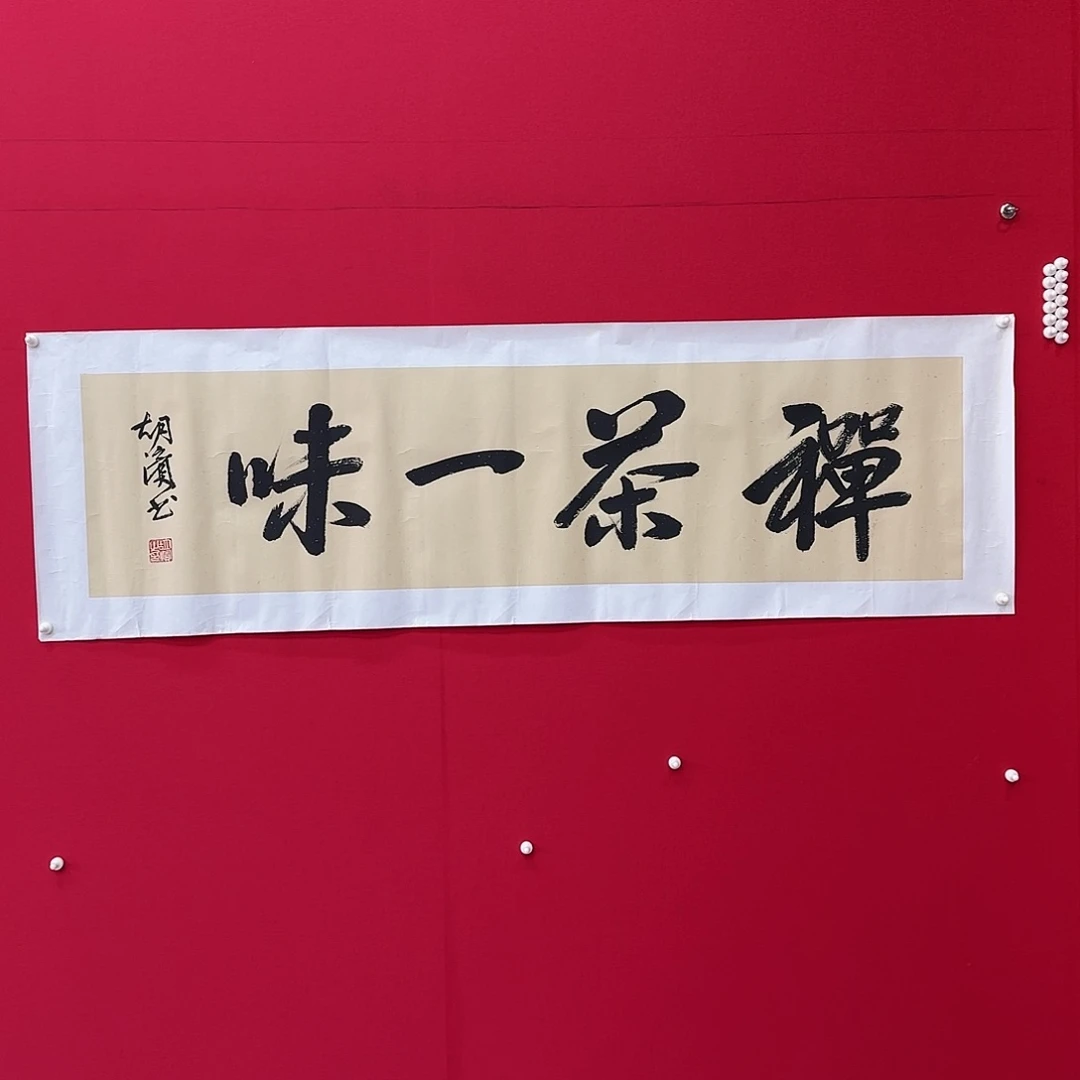 禪茶一味
胡濱书